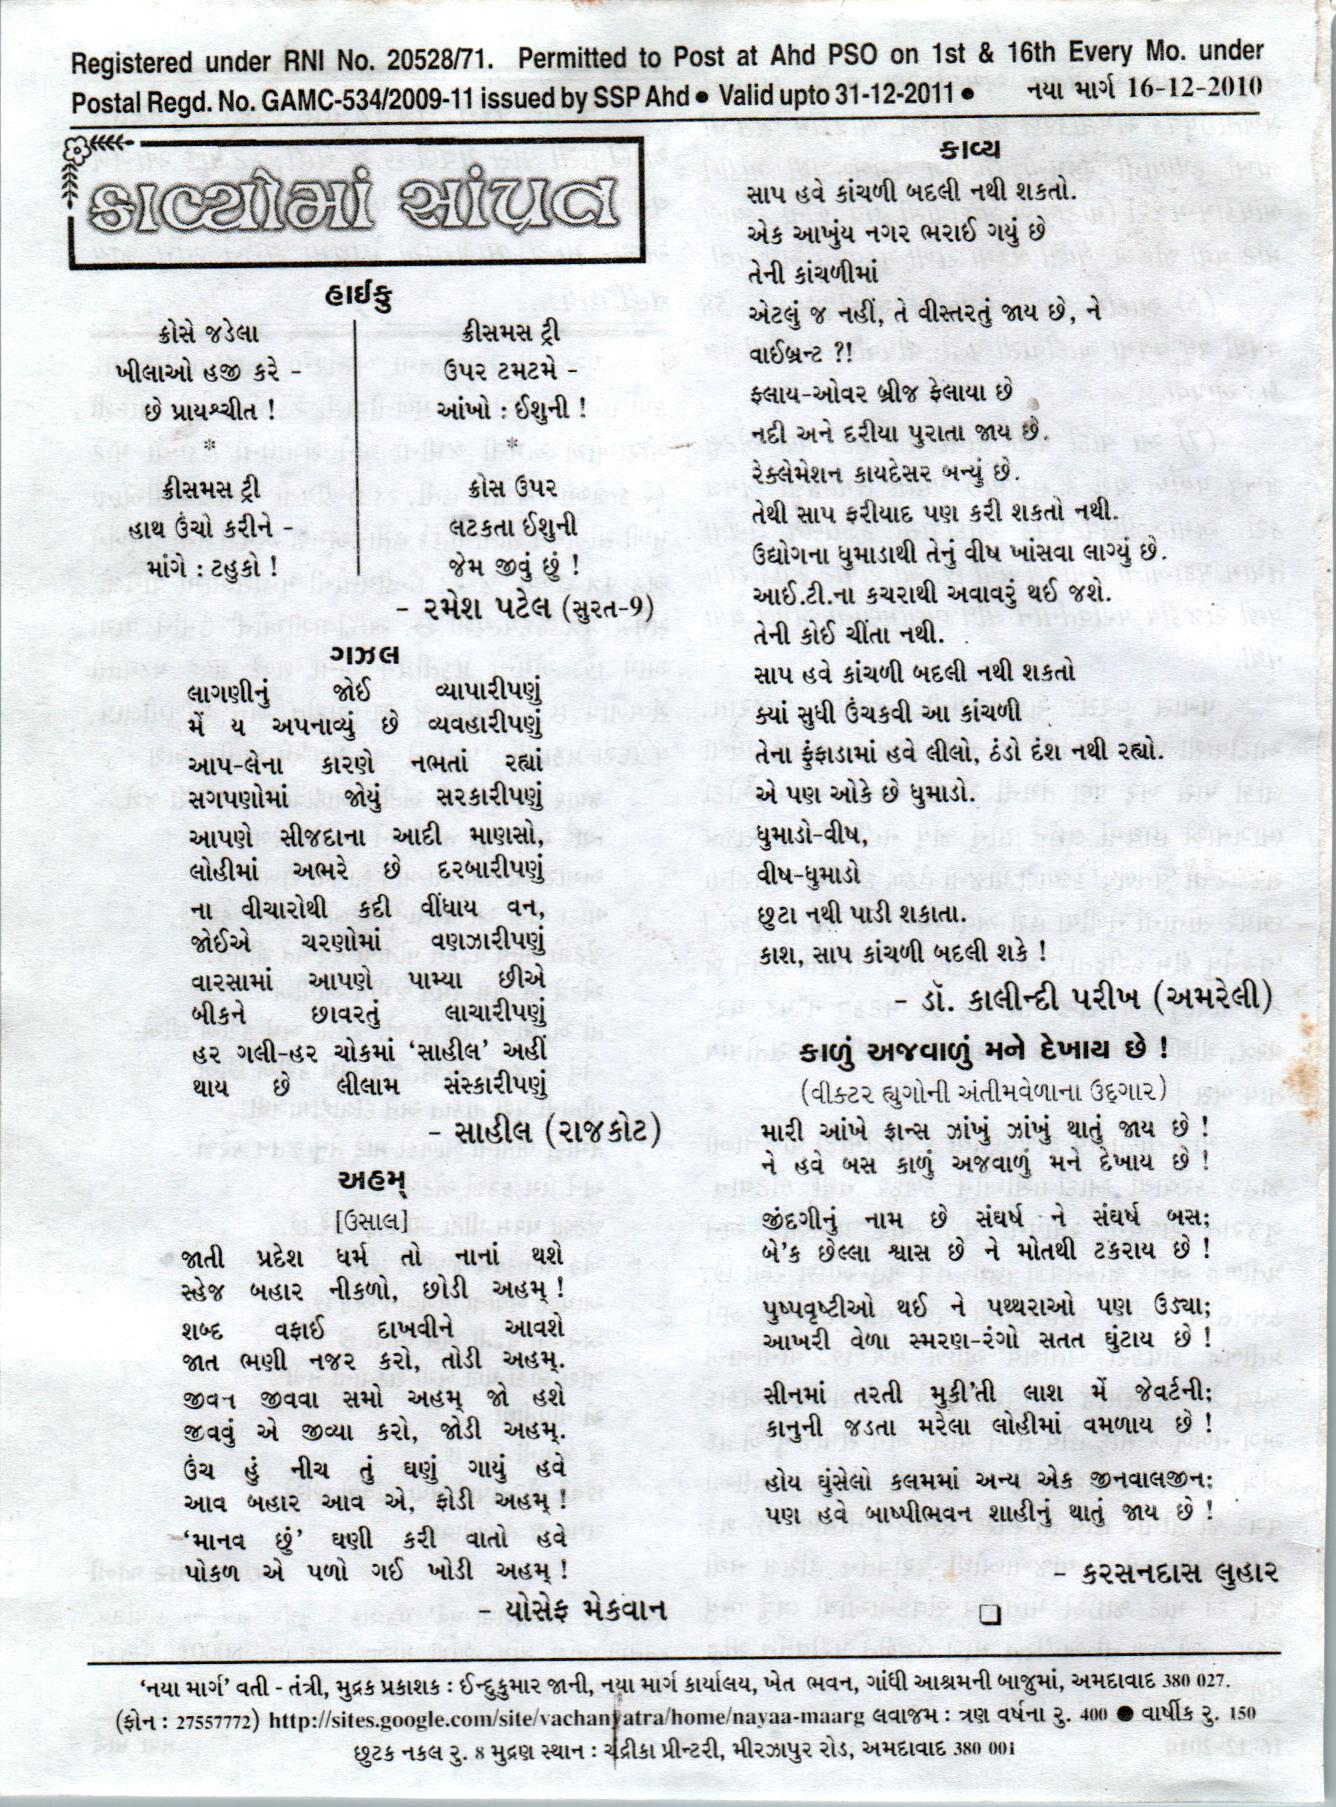 Registered under RNI No. 20528/71. Permitted to Post at Ahd PSO on 1st & 16th Every Mo. under
Postal Regd. No. GAMC-534/2009-11 issued by SSP Ahd ● Valid upto 31-12-2011 ● નયા માર્ગ 16-12-2010
કાવ્યોમાં સાંપ્રત
હાઈકુ
ક્રોસે જડેલા
ખીલાઓ હજી કરે -
છે પ્રાયશ્ચીત !
*
ક્રીસમસ ટ્રી
હાથ ઉંચો કરીને -
માંગે : ટહુકો !
ક્રીસમસ ટ્રી
ઉપર ટમટમે -
આંખો : ઈશુની !
*
ક્રોસ ઉપર
લટકતા ઈશુની
જેમ જીવું છું !
- રમેશ પટેલ (સુરત-9)
ગઝલ
લાગણીનું જોઈ વ્યાપારીપણું
મેં ય અપનાવ્યું છે વ્યવહારીપણું
આપ-લેના કારણે નભતાં રહ્યાં
સગપણોમાં જોયું સરકારીપણું
આપણે સીજદાના આદી માણસો,
લોહીમાં અભરે છે દરબારીપણું
ના વીચારોથી કદી વીંધાય વન,
જોઈએ ચરણોમાં વણઝારીપણું
વારસામાં આપણે પામ્યા છીએ
બીકને છાવરતું લાચારીપણું
હર ગલી-હર ચોકમાં ‘સાહીલ’ અહીં
થાય છે લીલામ સંસ્કારીપણું
- સાહીલ (રાજકોટ)
અહમ્
[ઉસાલ]
જાતી પ્રદેશ ધર્મ તો નાનાં થશે
સ્હેજ બહાર નીકળો, છોડી અહમ્ !
શબ્દ વફાઈ દાખવીને આવશે
જાત ભણી નજર કરો, તોડી અહમ્.
જીવન જીવવા સમો અહમ્ જો હશે
જીવવું એ જીવ્યા કરો, જોડી અહમ્.
ઉંચ હું નીચ તું ઘણું ગાયું હવે
આવ બહાર આવ એ, ફોડી અહમ્ !
‘માનવ છું’ ઘણી કરી વાતો હવે
પોકળ એ પળો ગઈ ખોડી અહમ્ !
- યોસેફ મેકવાન
કાવ્ય
સાપ હવે કાંચળી બદલી નથી શકતો.
એક આખુંય નગર ભરાઈ ગયું છે
તેની કાંચળીમાં
એટલું જ નહીં, તે વીસ્તરતું જાય છે, ને
વાઈબ્રન્ટ ?!
ફ્લાય-ઓવર બ્રીજ ફેલાયા છે
નદી અને દરીયા પુરાતા જાય છે.
રેક્લેમેશન કાયદેસર બન્યું છે.
તેથી સાપ ફરીયાદ પણ કરી શકતો નથી.
ઉદ્યોગના ધુમાડાથી તેનું વીષ ખાંસવા લાગ્યું છે.
આઈ.ટી.ના કચરાથી અવાવરું થઈ જશે.
તેની કોઈ ચીંતા નથી.
સાપ હવે કાંચળી બદલી નથી શકતો
ક્યાં સુધી ઉંચકવી આ કાંચળી
તેના ફુંફાડામાં હવે લીલો, ઠંડો દંશ નથી રહ્યો.
એ પણ ઓકે છે ધુમાડો.
ધુમાડો-વીષ,
વીષ-ધુમાડો
છુટા નથી પાડી શકાતા.
કાશ, સાપ કાંચળી બદલી શકે !
- ડૉ. કાલીન્દી પરીખ (અમરેલી)
કાળું અજવાળું મને દેખાય છે !
(વીક્ટર હ્યુગોની અંતીમવેળાના ઉદ્ગાર)
મારી આંખે ફ્રાન્સ ઝાંખું ઝાંખું થાતું જાય છે !
ને હવે બસ કાળું અજવાળું મને દેખાય છે !
જીંદગીનું નામ છે સંઘર્ષ ને સંઘર્ષ બસ;
બે’ક છેલ્લા શ્વાસ છે ને મોતથી ટકરાય છે !
પુષ્પવૃષ્ટીઓ થઈ ને પથ્થરાઓ પણ ઉડ્યા;
આખરી વેળા સ્મરણ-રંગો સતત ઘુંટાય છે !
સીનમાં તરતી મુકી’તી લાશ મેં જેવર્ટની;
કાનુની જડતા મરેલા લોહીમાં વમળાય છે !
હોય ઘુંસેલો કલમમાં અન્ય એક જીનવાલજીન;
પણ હવે બાષ્પીભવન શાહીનું થાતું જાય છે !
- કરસનદાસ લુહાર
‘નયા માર્ગ’ વતી - તંત્રી, મુદ્રક પ્રકાશક : ઈન્દુકુમાર જાની, નયા માર્ગ કાર્યાલય, ખેત ભવન, ગાંધી આશ્રમની બાજુમાં, અમદાવાદ 380 027.
(ફોન : 27557772) http://sites.google.com/site/vachanyatra/home/nayaa-maarg લવાજમ : ત્રણ વર્ષના રુ. 400 ● વાર્ષીક રુ. 150
છુટક નકલ રુ. 8 મુદ્રણ સ્થાન : ચંદ્રીકા પ્રીન્ટરી, મીરઝાપુર રોડ, અમદાવાદ 380 001